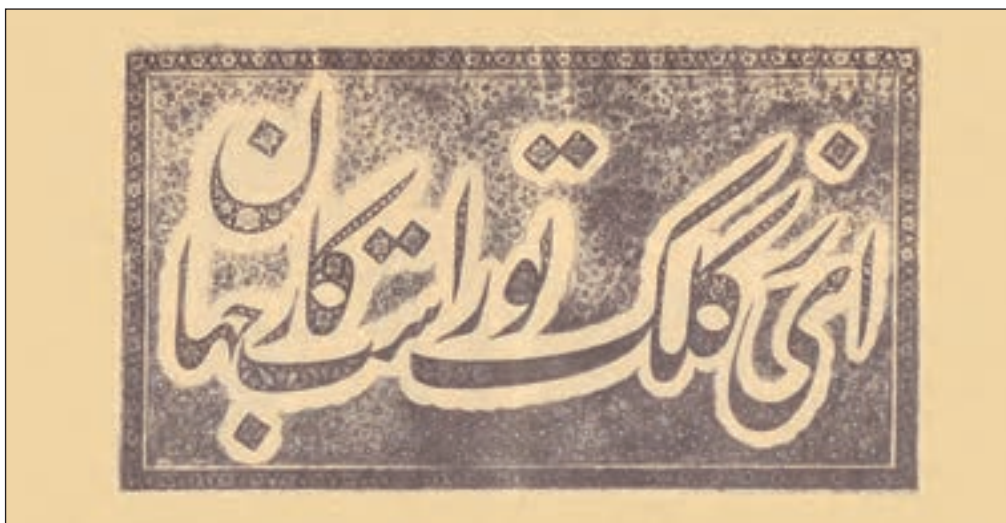 از نی کلک تو راست کار جهان